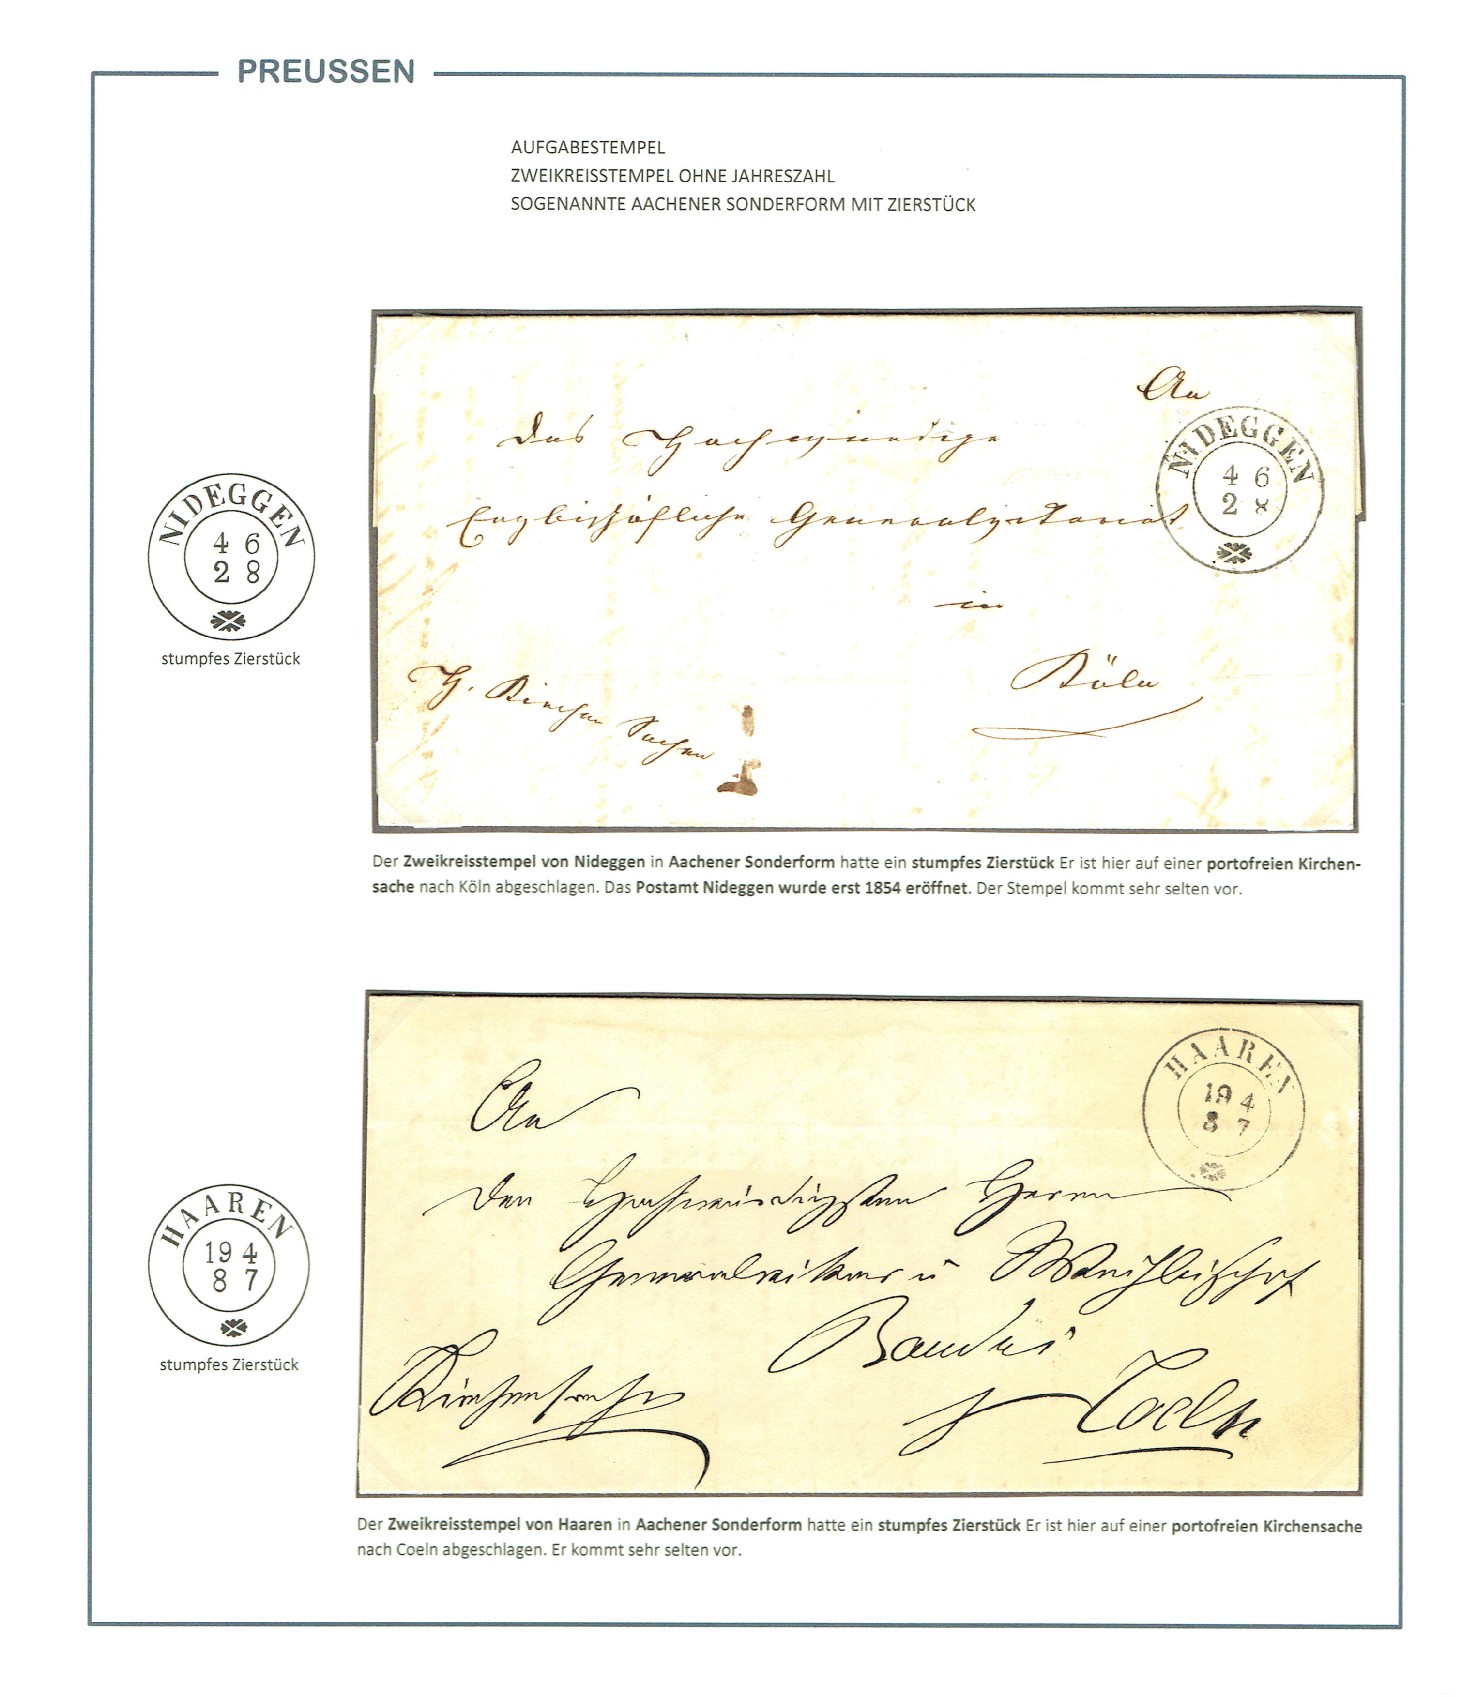 PREUSSEN
AUFGABESTEMPEL
ZWEIKREISSTEMPEL OHNE JAHRESZAHL
SOGENANNTE AACHENER SONDERFORM MIT ZIERSTÜCK
An
NIDEGGEN
4 6
2 8
Das Hochwürdige
Erzbischöfliche Generalvikariat
in
Köln
H. Kirchen Sachen
NIDEGGEN
4 6
2 8
stumpfes Zierstück
Der Zweikreisstempel von Nideggen in Aachener Sonderform hatte ein stumpfes Zierstück Er ist hier auf einer portofreien Kirchen-
sache nach Köln abgeschlagen. Das Postamt Nideggen wurde erst 1854 eröffnet. Der Stempel kommt sehr selten vor.
HAAREN
19 4
8 7
An
Den Hochwürdigsten Herrn
Generalvikar u Weihbischof
Baudri
Coeln
Kirchensache
HAAREN
19 4
8 7
stumpfes Zierstück
Der Zweikreisstempel von Haaren in Aachener Sonderform hatte ein stumpfes Zierstück Er ist hier auf einer portofreien Kirchensache
nach Coeln abgeschlagen. Er kommt sehr selten vor.